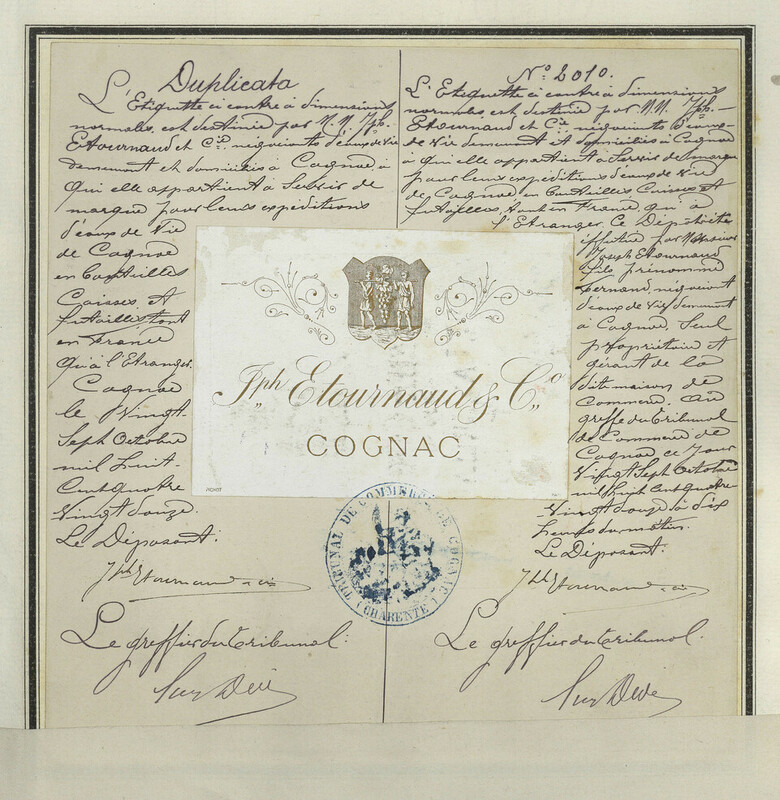 Duplicata
L'Etiquette ci contre à dimensions
normales, est destinée par M.M. Jph.
Etournaud et Cie négociants d'eaux de Vie
demeurant et domiciliés à Cognac, à
qui elle appartient à Servir de
marque pour leurs expéditions
d'eaux de Vie
de Cognac
en Bouteilles
Caisses et
futailles tant
en France
qu'à l'Etranger.
Cognac
le Vingt-
Sept Octobre
mil huit-
Cent quatre
Vingt douze.
Le Déposant:
Jph Etournaud & Cie
Le greffier du Tribunal:
No 2010.
L'Etiquette ci contre à dimensions
normales, est destinée par M.M. Jph.
Etournaud et Cie négociants d'eaux-
de Vie demeurant et domiciliés à Cognac
à qui elle appartient à Servir de marque
pour leurs expéditions d'eaux de Vie
de Cognac en Bouteilles Caisses et
futailles, tant en France, qu'à
l'Etranger. Ce Dépôt être
effectué par Monsieur
Joseph Etournaud
fils, prénommé
Fernand négociant
d'eaux de Vie demeurant
à Cognac, Seul
propriétaire et
gérant de la
dite maison de
Commerce, au
greffe du Tribunal
de Commerce de
Cognac ce jour
Vingt Sept Octobre
mil huit cent quatre
Vingt douze à dix
heures du matin.
Le Déposant:
Jph Etournaud & Cie
Le greffier du Tribunal.
Jph Etournaud & Co
COGNAC
TRIBUNAL DE COMMERCE DE COGNAC
(CHARENTE)